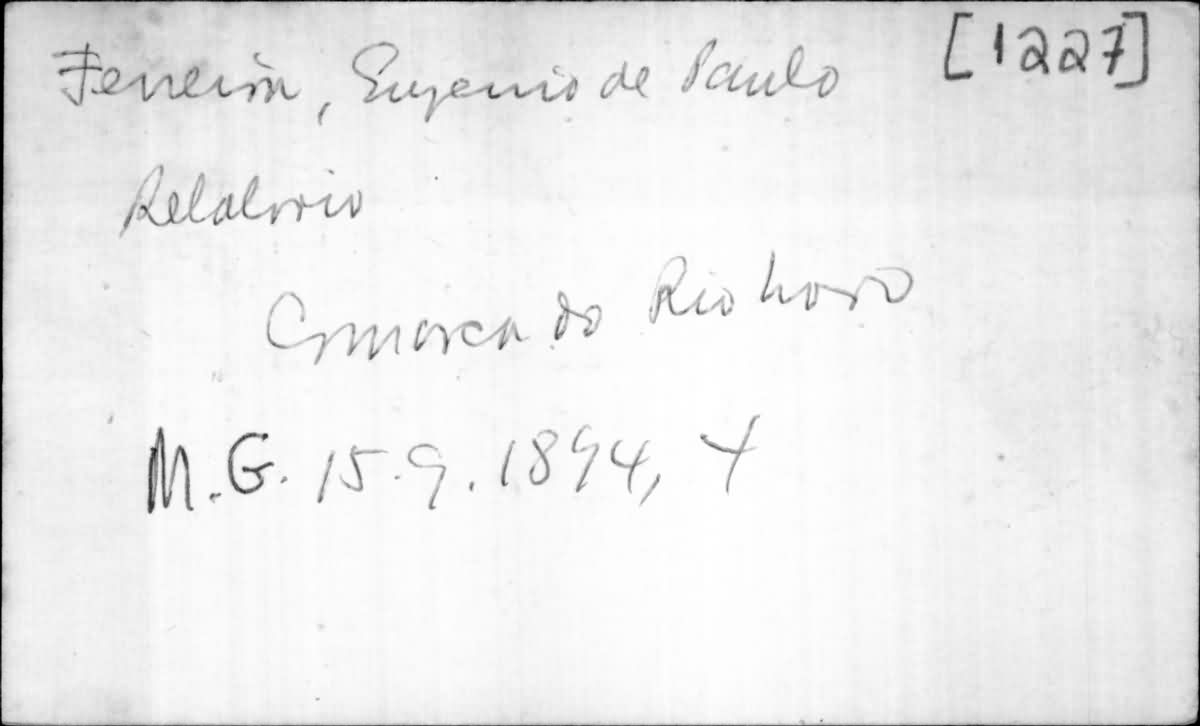 Ferreira, Eugenio de Paulo [1227]
Relatorio
Comarca do Rio Novo
M.G. 15.9.1894, 4